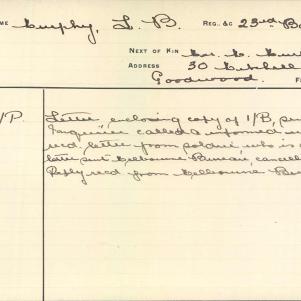 ME Murphy, L. B. REG. &c 23rd Ba
NEXT OF KIN Mrs. C. Mur
ADDRESS 30 Mitchell
Goodwood. F
/P. Letter, enclosing copy of I/B, sen
Inquirer called & informed us
recd. letter from soldier, who is
letter sent Melbourne Bureau, cancell
Reply recd from Melbourne Bur